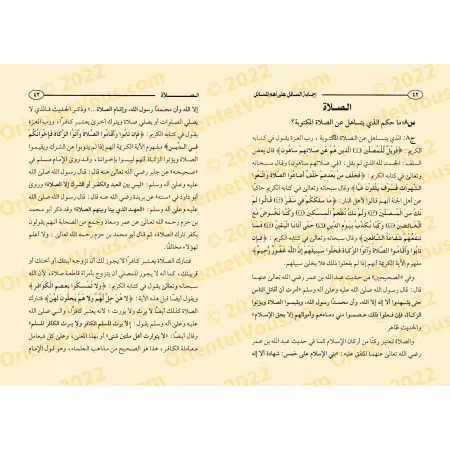 ٤٢
إجابة السائل على أهم المسائل
الصلاة
س٨: ما حكم الذي يتساهل عن الصلاة المكتوبة؟
ج٨: الذي يتساهل عن الصلاة المكتوبة ، ورب العزة يقول في كتابه
الكريم: ﴿فويل للمصلين الذين هم عن صلاتهم ساهون﴾ قال بعض
السلف: الحمد لله الذي لم يقل: (في صلاتهم ساهون) وقال سبحانه
وتعالى في كتابه الكريم: ﴿فخلف من بعدهم خلف أضاعوا الصلاة واتبعوا
الشهوات فسوف يلقون غيا﴾ وقال سبحانه وتعالى في كتابه الكريم حاكيًا
عن أهل الجنة أنهم قالوا لأهل النار: ﴿ما سلككم في سقر قالوا لم
نك من المصلين ولم نك نطعم المسكين وكنا نخوض مع
الخائضين وكنا نكذب بيوم الدين حتى أتانا اليقين فما
تنفعهم شفاعة الشافعين﴾ وقال سبحانه وتعالى في كتابه الكريم: ﴿فإن
تابوا وأقاموا الصلاة وآتوا الزكاة فخلوا سبيلهم إن الله غفور رحيم﴾
مفهوم الآية الكريمة أنهم إذا لم يفعلوا ذلك فلا يخلى سبيلهم.
وفي «الصحيحين» من حديث عبد الله بن عمر رضي الله تعالى عنهما
قال: قال رسول الله صلى الله عليه وعلى آله وسلم: «أمرت أن أقاتل الناس
حتى يشهدوا ألا إله إلا الله وأن محمدًا رسول الله، ويقيموا الصلاة ويؤتوا
الزكاة، فإن فعلوا ذلك عصموا مني دماءهم وأموالهم إلا بحق الإسلام»
والحديث ظاهر.
والصلاة تعتبر ركنًا من أركان الإسلام كما في حديث عبد الله بن عمر
رضي الله تعالى عنهما المتفق عليه: «بني الإسلام على خمس: شهادة ألا إله
الصـــلاة
٤٣
إلا الله وأن محمدًا رسول الله، وإقام الصلاة...» وذكر الحديث فالذي لا
يصلي الصلوات أو يصلي صلاة ويترك أخرى يعتبر كافرًا، ورب العزة
يقول في كتابه الكريم: ﴿فإن تابوا وأقاموا الصلاة وآتوا الزكاة فإخوانكم
في الدين﴾ مفهوم الآية الكريمة أنهم إذا لم يتوبوا من الشرك ويقيموا
الصلاة ويؤتوا الزكاة أنهم ليسوا بإخواننا، وقد روى الإمام مسلم في
«صحيحه» عن جابر رضي الله تعالى عنه قال: قال رسول الله صلى الله
عليه وعلى آله وسلم: «ليس بين العبد والكفر أو الشرك إلا الصلاة» وروى
أبو داود في «سننه» عن بريدة رضي الله عنه قال: قال رسول الله صلى الله
عليه وعلى آله وسلم: «العهد الذي بيننا وبينهم الصلاة» وقد ذكر أبو محمد
بن حزم رحمه الله تعالى عن عمر ومعاذ وجمع من الصحابة أنهم يقولون
بكفر تارك الصلاة، ثم قال أبو محمد بن حزم رحمه الله تعالى: ولا أعلم
لهؤلاء مخالفًا.
فتارك الصلاة يعتبر كافرًا لا يجوز لك أن تزوجه ابنتك أو أختك أو
قريبتك، كما أنه لا يجوز للمصلي أن يتزوج بامرأة قاطعة صلاة، لأن الله
سبحانه وتعالى يقول في كتابه الكريم: ﴿ولا تمسكوا بعصم الكوافر﴾
ويقول أيضًا قبل هذه الآية: ﴿لا هن حل لهم ولا هم يحلون لهن﴾ فتارك
الصلاة كذلك أيضًا لا يرث ولا يورث ؛ لأنه يعتبر كافرًا، والنبي صلى الله
عليه وعلى آله وسلم يقول: «لا يرث المسلم الكافر ولا يرث الكافر المسلم»
وقال أيضًا: «لا يتوارث أهل ملتين شتى» أو بهذا المعنى، وعلى كل فيعامل
معاملة الكافر، هذا هو الصحيح من مذاهب العلماء، وهو قول الإمام